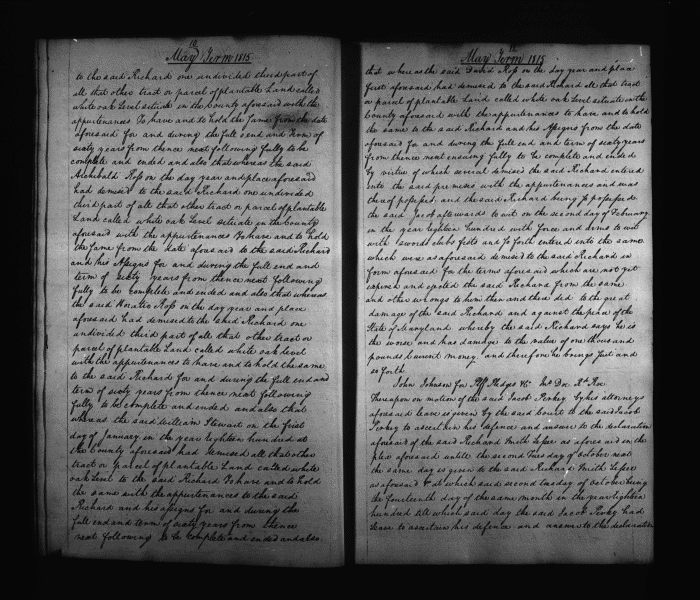 10
May Term 1815
to the said Richard one undivided third part of
all that other tract or parcel of plantable Land called
white oak Level situate in the County aforesaid with the
appurtenances To have and to hold the same from the date
aforesaid for and during the full end and term of
sixty years from thence next following fully to be
complete and ended and also that whereas the said
Archibald Ross on the day year and place aforesaid
had demised to the said Richard one undivided
third part of all that other tract or parcel of plantable
Land called white oak Level situate in the County
aforesaid with the appurtenances To have and to hold
the same from the date aforesaid to the said Richard
and his Assigns for and during the full end and
term of sixty years from thence next following
fully to be complete and ended and also that whereas
the said Horatio Ross on the day year and place
aforesaid had demised to the said Richard one
undivided third part of all that other tract or
parcel of plantable Land called white oak level
with the appurtenances to have and to hold the same
to the said Richard for and during the full end and
term of sixty years from thence next following
fully to be complete and ended and also that
whereas the said William Stewart on the first
day of January in the year Eighteen hundred at
the County aforesaid had demised all that other
tract or parcel of plantable Land called white
oak Level to the said Richard To have and to hold
the same with the appurtenances to the said
Richard and his assigns for and during the
full end and term of sixty years from thence
next following to be complete and ended and also
May Term 1815
that whereas the said David Ross on the day year and place
first aforesaid had demised to the said Richard all that tract
or parcel of plantable Land called white oak Level situate in the
County aforesaid with the appurtenances to have and to hold
the same to the said Richard and his Assigns from the date
aforesaid for and during the full end and term of sixty years
from thence next ensuing fully to be complete and ended
by virtue of which several demises the said Richard entered
into the said premises with the appurtenances and was
thereof possessed and the said Richard being so possessed
the said Jacob afterwards to wit on the second day of February
in the year Eighteen hundred with force and arms to wit
with swords clubs fists and so forth entered into the same
which were as aforesaid demised to the said Richard in
form aforesaid for the terms aforesaid which are not yet
expired and ejected the said Richard from the same
and other wrongs to him then and there did to the great
damage of the said Richard and against the peace of the
State of Maryland whereby the said Richard says he is
the worse and has damage to the value of one thousand
pounds current money and therefore he brings suit and
so forth
John Johnson for Plff Pledges &c Jno Doe Rd Roe
Thereupon on motion of the said Jacob by his attorneys
aforesaid leave is given by the said Court to the said Jacob
to ascertain his defence and answer to the declaration
aforesaid of the said Richard Smith Lessee as aforesaid in the
plea aforesaid untill the second Tuesday of October next
the same day is given to the said Richard Smith Lessee
as aforesaid &c at which said second tuesday of October being
the fourteenth day of the same month in the year Eighteen
hundred till which said day the said Jacob had
leave to ascertain his defence and answer to the declaration